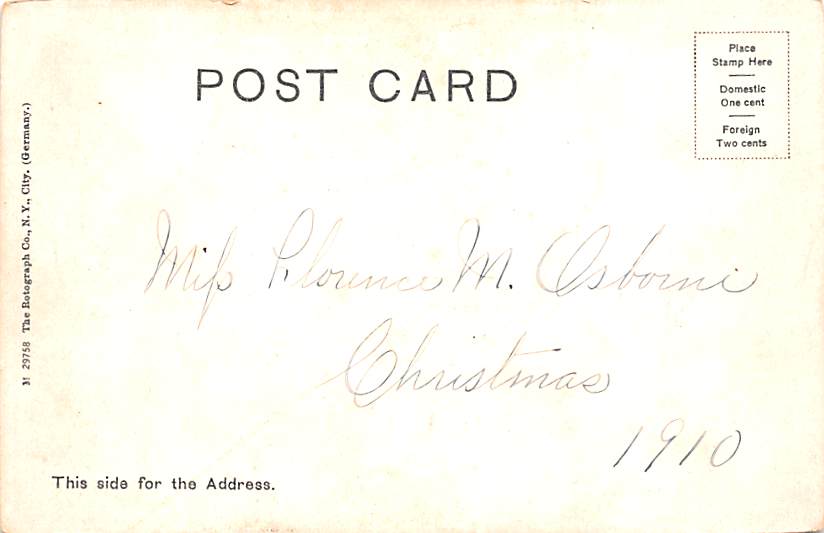 POST CARD
Place
Stamp Here
Domestic
One cent
Foreign
Two cents
M 29758 The Rotograph Co., N. Y., City. (Germany.)
Miss Florence M. Osborne
Christmas
1910
This side for the Address.